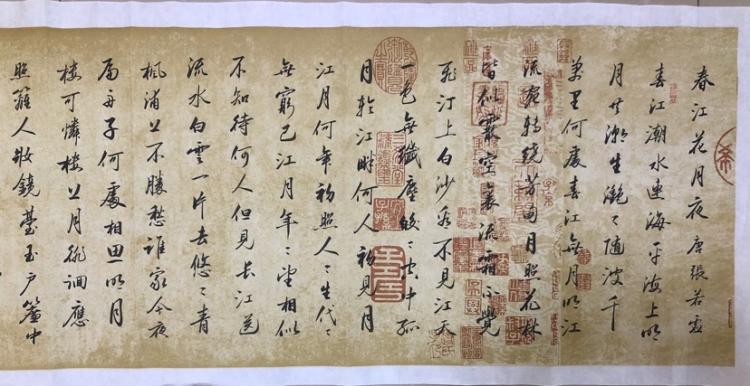 春江花月夜 唐 張若虛
春江潮水連海平海上明
月共潮生灩〻隨波千
萬里何處春江無月明江
流宛轉繞芳甸月照花林
皆似霰空裏流霜不覺
飛汀上白沙看不見江天
一色無纖塵皎〻空中孤
月輪江畔何人初見月
江月何年初照人〻生代〻
無窮已江月年〻望相似
不知待何人但見長江送
流水白雲一片去悠〻青
楓浦上不勝愁誰家今夜
扁舟子何處相思明月
樓可憐樓上月徘徊應
照離人妝鏡臺玉戶簾中